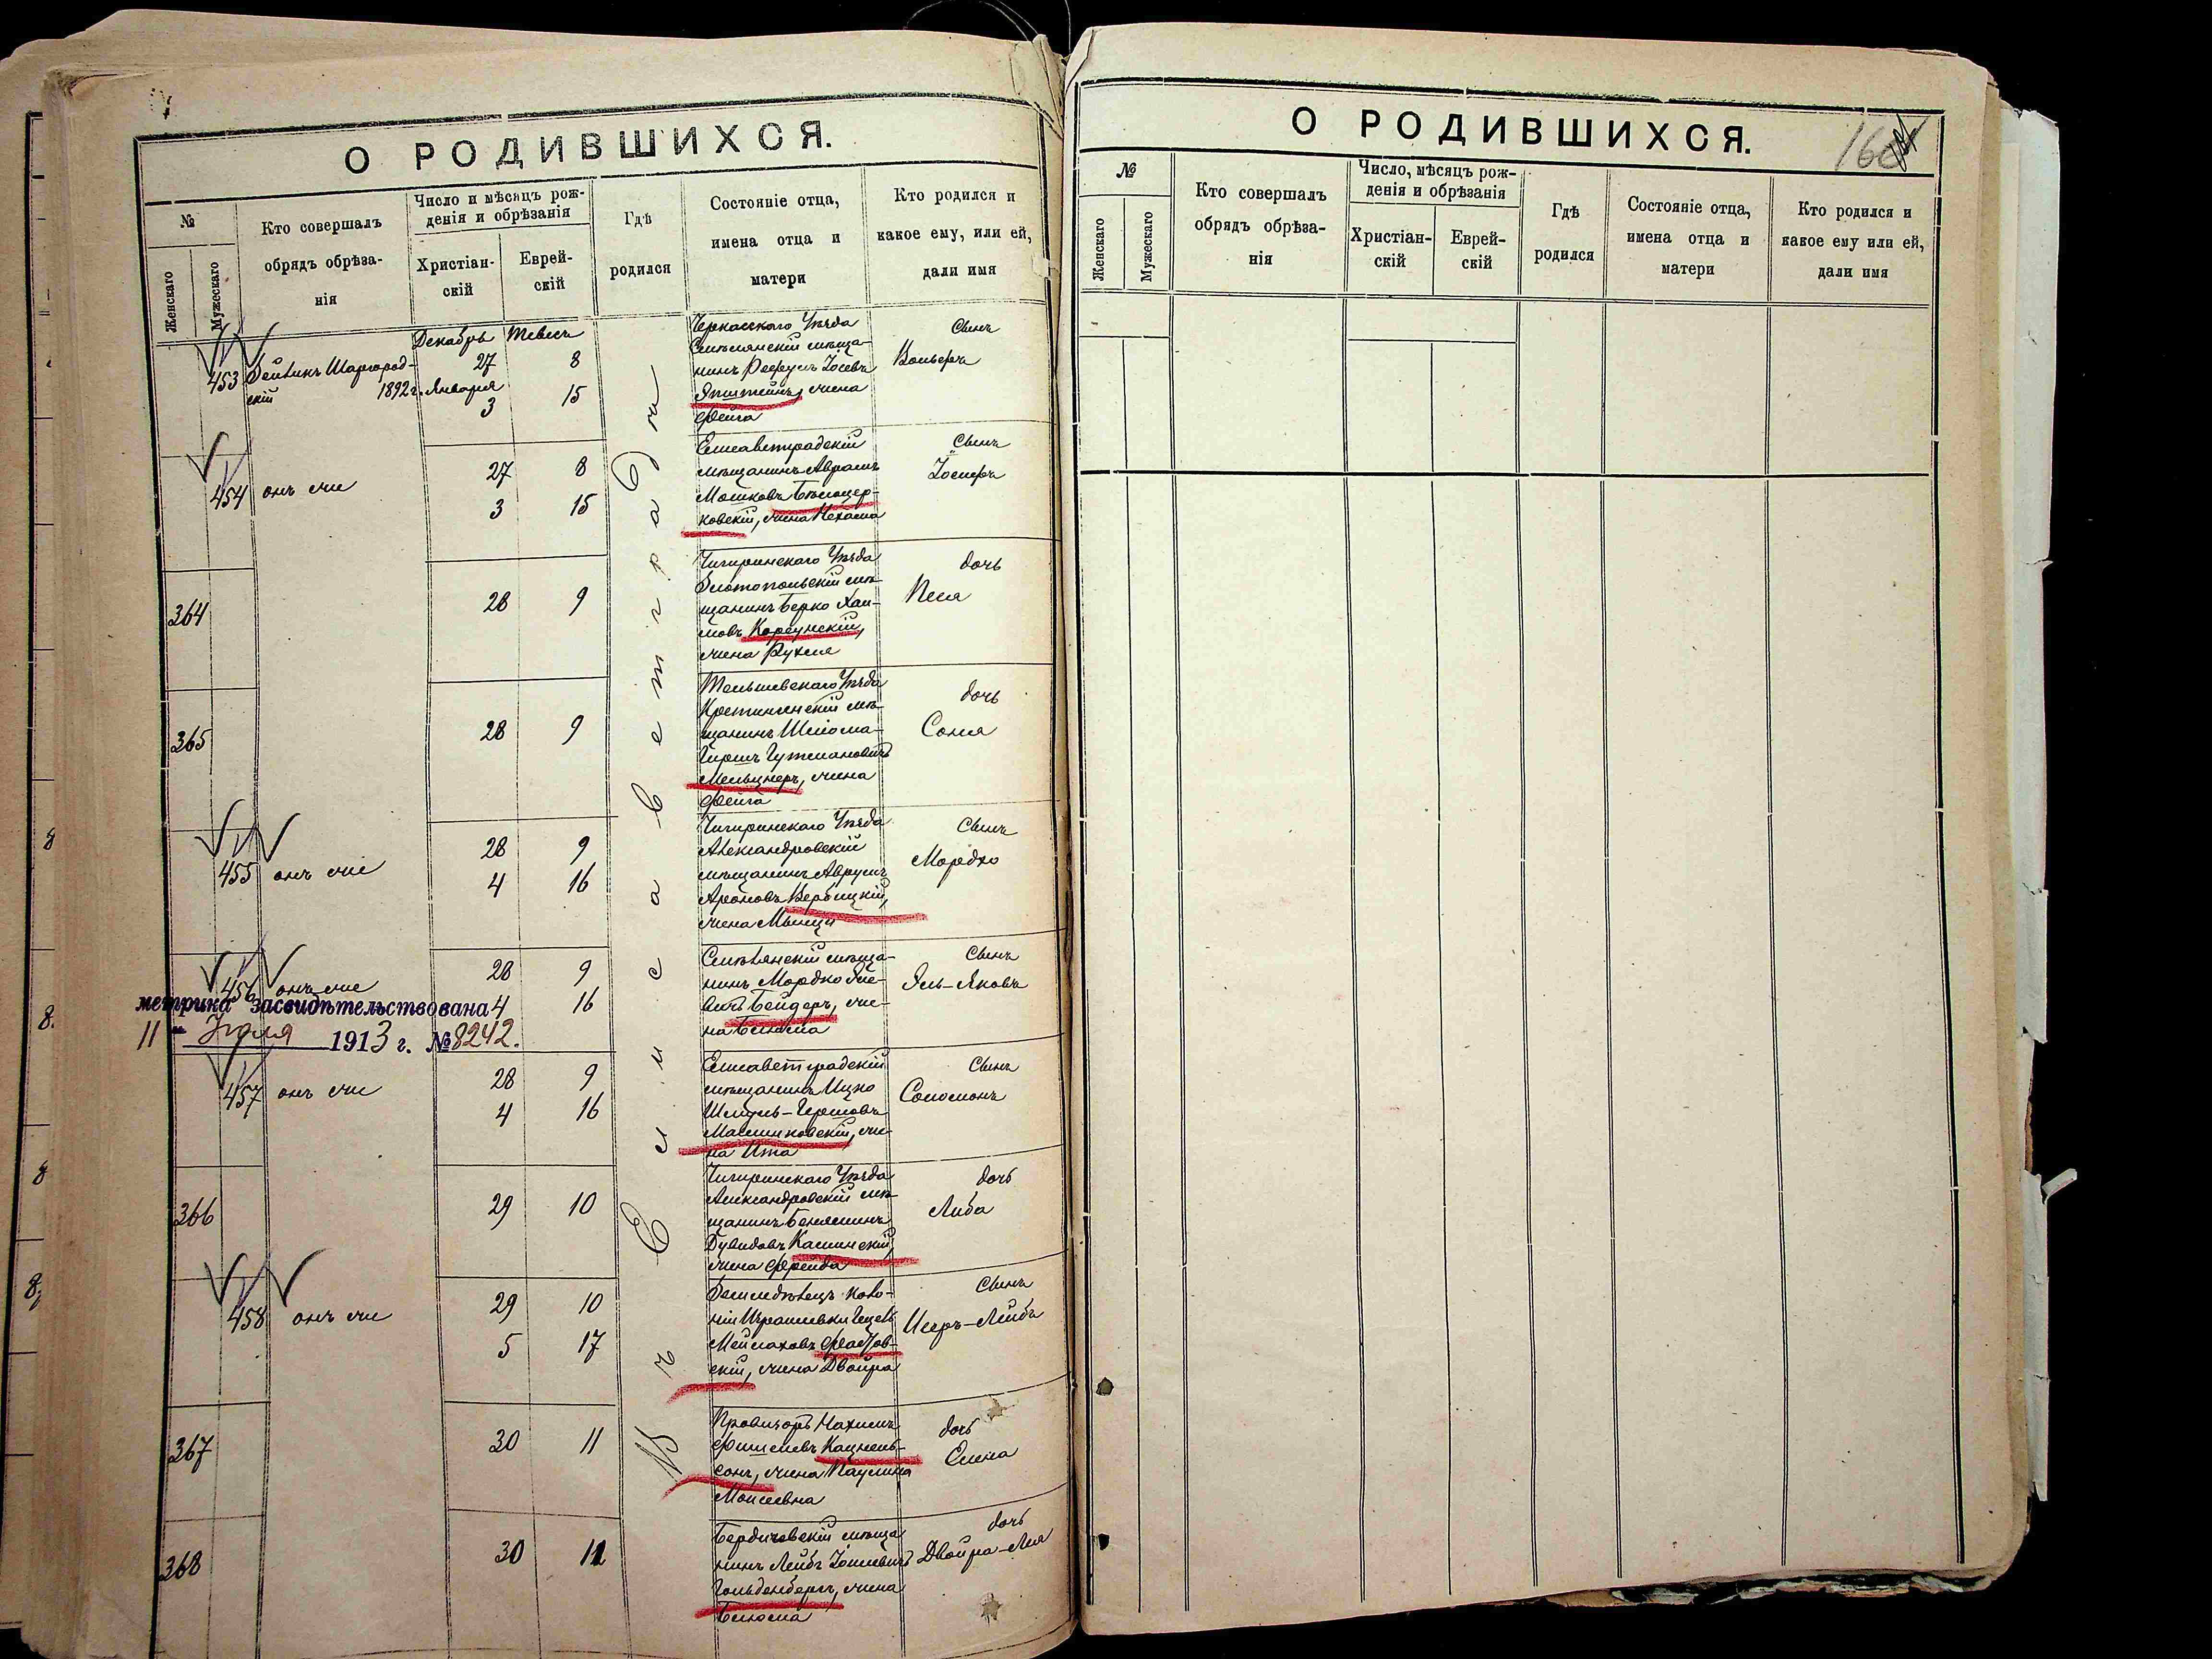 О РОДИВШИХСЯ.
№
Женскаго
Мужескаго
Кто совершалъ
обрядъ обрѣза-
нія
Число и мѣсяцъ рож-
денія и обрѣзанія
Христіан-
скій
Еврей-
скій
Гдѣ
родился
Состояніе отца,
имена отца и
матери
Кто родился и
какое ему, или ей,
дали имя
Въ Елисаветградѣ
Декабрь Тевесъ
453 Зейликъ Шаргород-
скій
27 8
1892 г. Января
3 15
Черкасскаго Уѣзда
Смѣлянскій мѣща-
нинъ Рефуль Іосевъ
Эпштейнъ, жена
Фейга
Сынъ
Вольфъ
454 онъ же
27 8
3 15
Елисаветградскій
мѣщанинъ Аврамъ
Мошковъ Бѣлоцер-
ковскій, жена Нехама
Сынъ
Іосифъ
364
28 9
Чигиринскаго Уѣзда
Златопольскій мѣ-
щанинъ Берко Хаи-
мовъ Корсунскій,
жена Рухля
дочь
Песя
365
28 9
Тельшевскаго Уѣзда
Кретингенскій мѣ-
щанинъ Шліома-
Гиршъ Гутмановичъ
Мельцнеръ, жена
Фейга
дочь
Соня
455 онъ же
28 9
4 16
Чигиринскаго Уѣзда
Александровскій
мѣщанинъ Аврумъ
Ароновъ Вербицкій,
жена Мынця
Сынъ
Мордко
456 онъ же
28 9
4 16
Смѣлянскій мѣща-
нинъ Мордко
Бейдеръ, же-
на Блюма
Сынъ
Эль-Яковъ
метрика засвидѣтельствована
11 Іюля 1913 г. № 8242.
457 онъ же
28 9
4 16
Елисаветградскій
мѣщанинъ Ицко
Шмуль-Гершовъ
Масминковскій, же-
на Ита
Сынъ
Соломонъ
366
29 10
Чигиринскаго Уѣзда
Александровскій мѣ-
щанинъ Беньяминъ
Дувидовъ Каминскій,
жена Фрейда
дочь
Либа
458 онъ же
29 10
5 17
Земледѣлецъ коло-
ніи Израилевки
Мейлаховъ
скій, жена Двойра
Сынъ
Исеръ-Лейбъ
367
30 11
Провизоръ Нахимъ
Фишелевъ Кацнель-
сонъ, жена Паулина
Моисеевна
дочь
Елена
368
30 11
Бердичевскій мѣща
нинъ Лейбъ Іошевичъ
Гольденбергъ, жена
Блюма
дочь
Двойра-Лея
О РОДИВШИХСЯ.
№
Женскаго
Мужескаго
Кто совершалъ
обрядъ обрѣза-
нія
Число, мѣсяцъ рож-
денія и обрѣзанія
Христіан-
скій
Еврей-
скій
Гдѣ
родился
Состояніе отца,
имена отца и
матери
Кто родился и
какое ему или ей,
дали имя